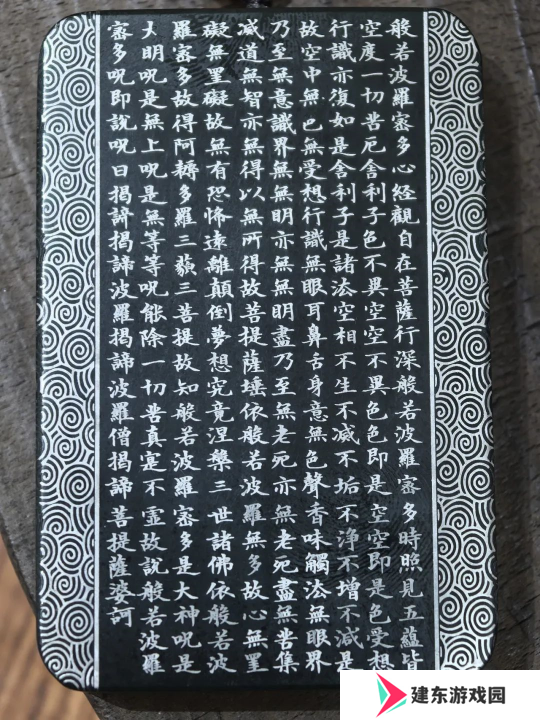 般若波羅密多心経觀自在菩薩行深般若波羅密多時照見五蘊皆
空度一切苦厄舍利子色不異空空不異色色即是空空即是色受想
行識亦復如是舍利子是諸法空相不生不滅不垢不淨不增不減是
故空中無色無受想行識無眼耳鼻舌身意無色聲香味觸法無眼界
乃至無意識界無無明亦無無明盡乃至無老死亦無老死盡無苦集
滅道無智亦無得以無所得故菩提薩埵依般若波羅無多故心無罣
礙無罣礙故無有恐怖遠離顛倒夢想究竟涅槃三世諸佛依般若波
羅密多故得阿耨多羅三藐三菩提故知般若波羅密多是大神呪是
大明呪是無上呪是無等等呪能除一切苦真寔不靈故說般若波羅
密多呪即說呪曰揭諦揭諦波羅揭諦波羅僧揭諦菩提薩婆訶
建东游戏园